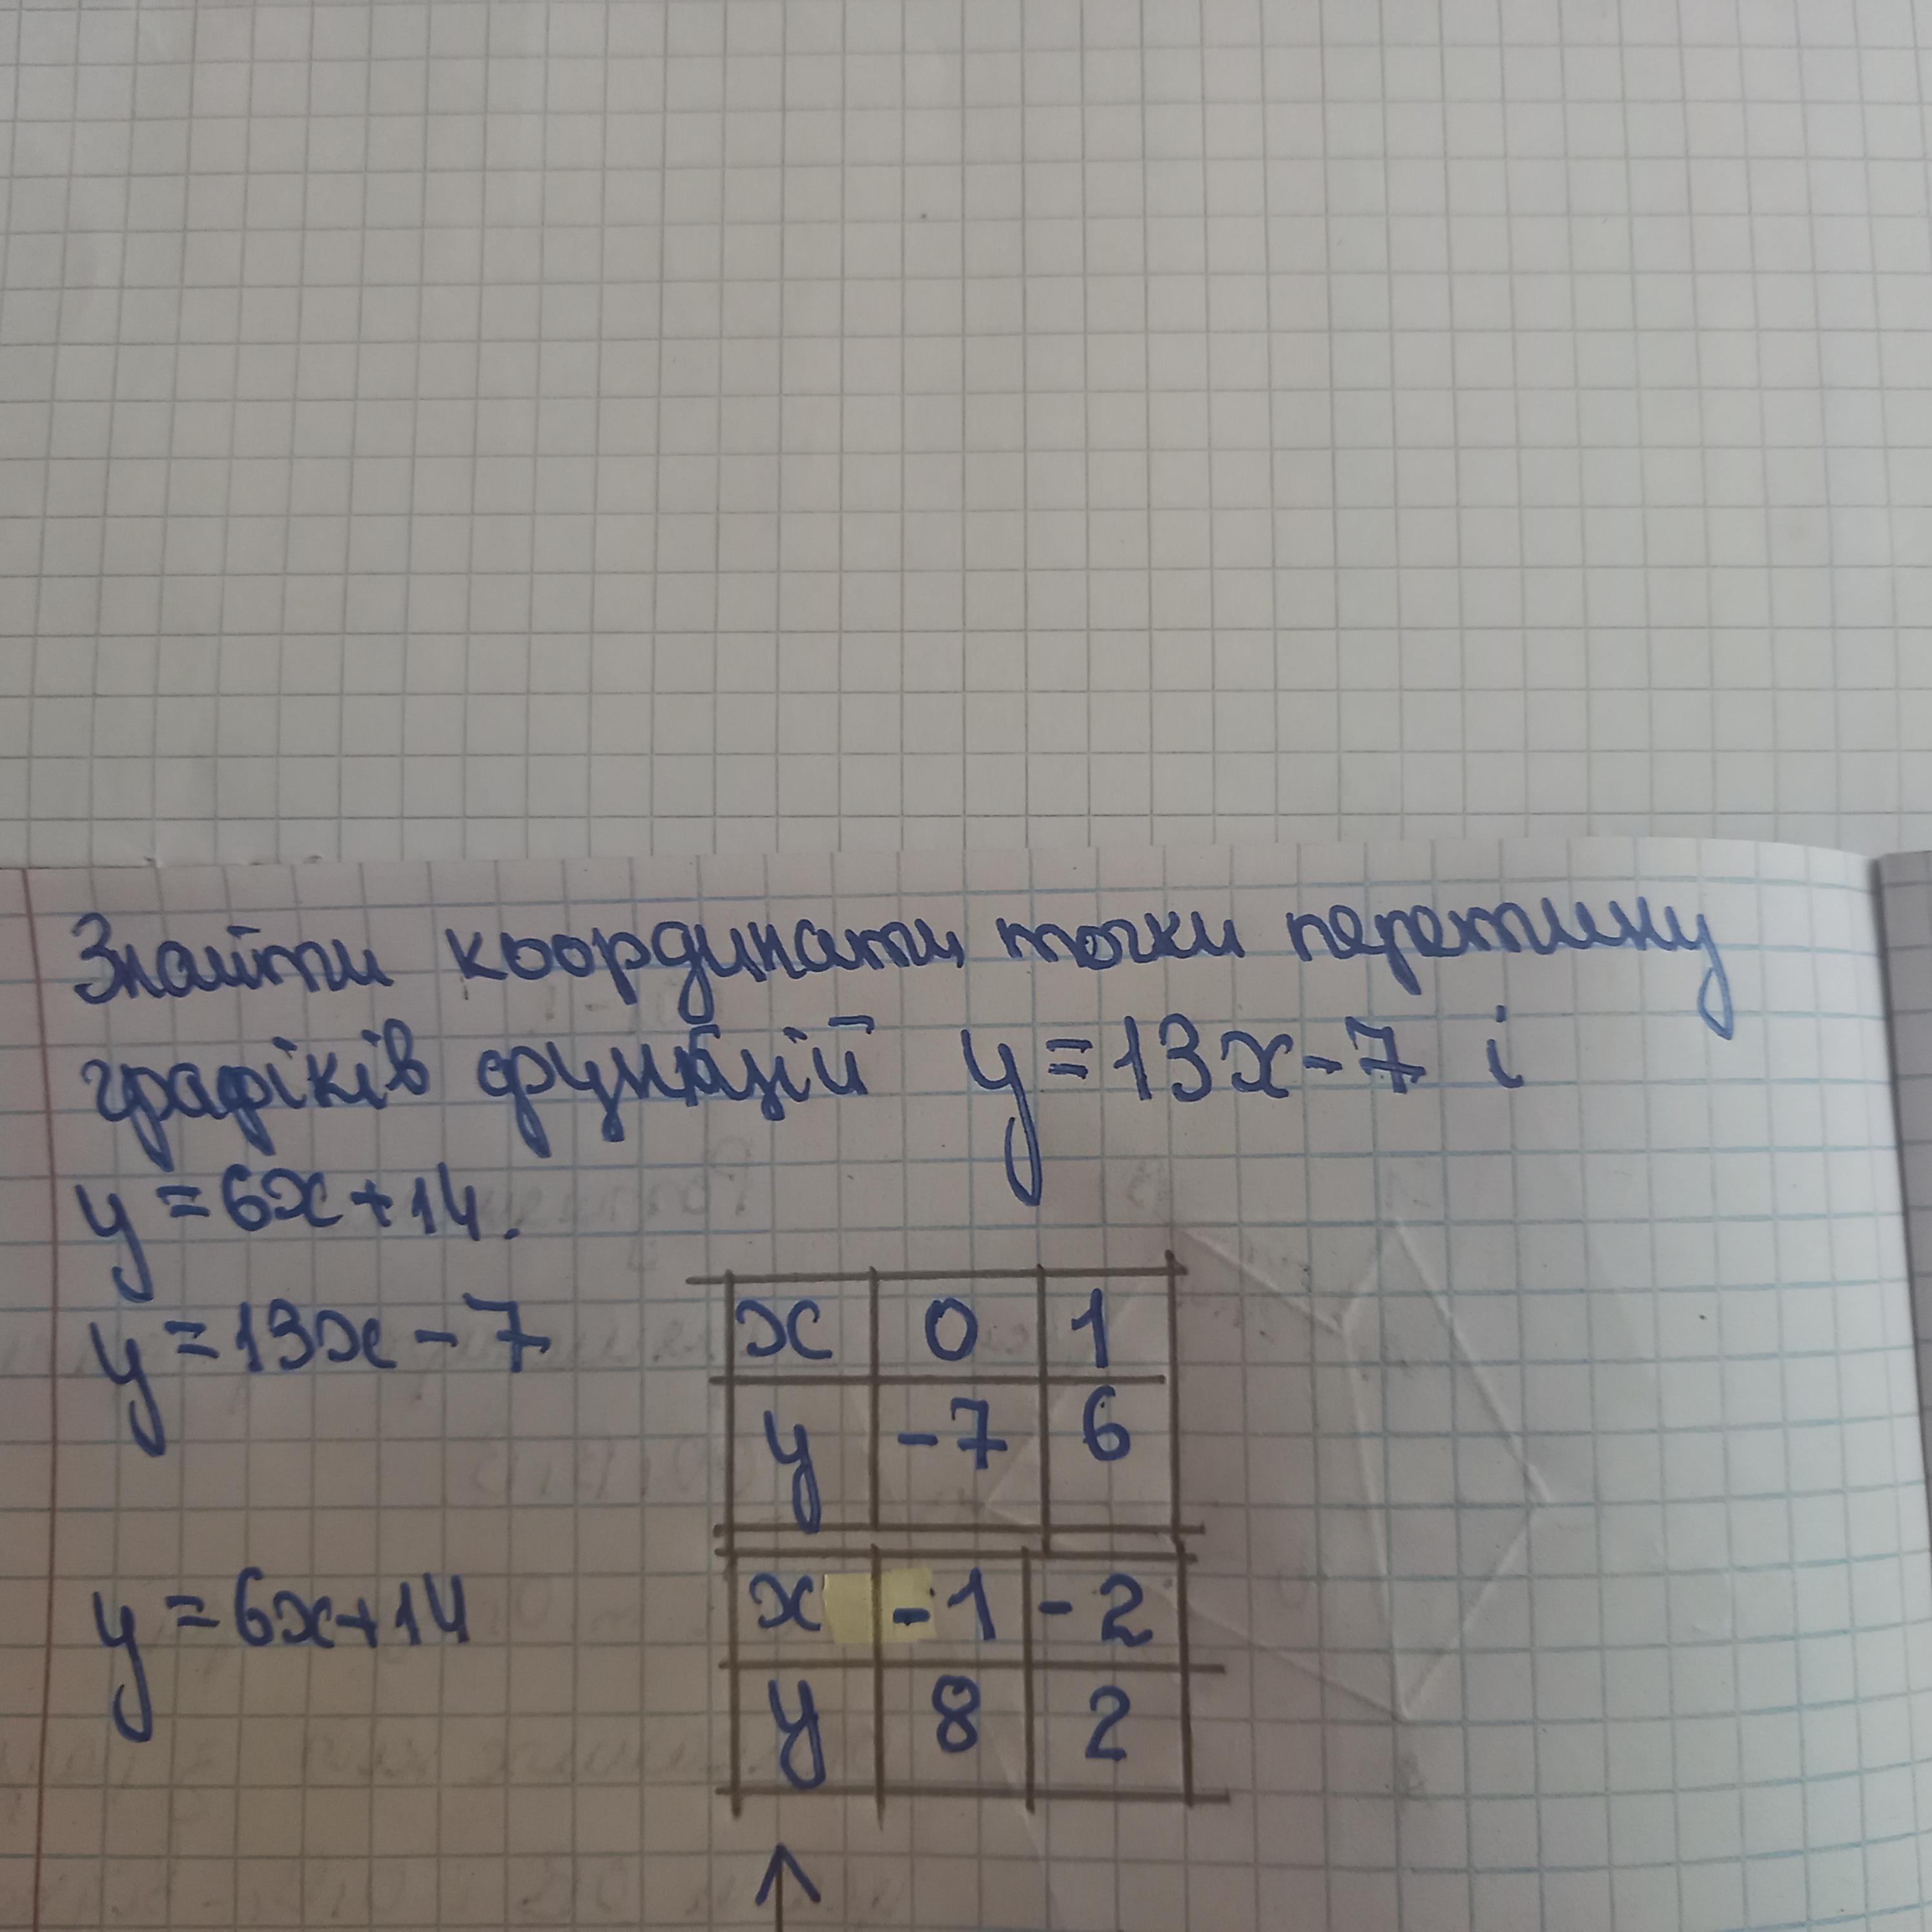 Знайти координати точки перетину
графіків функцій y = 13x - 7 і
y = 6x + 14.
y = 13x - 7
x 0 1
y -7 6
y = 6x + 14
x -1 -2
y 8 2